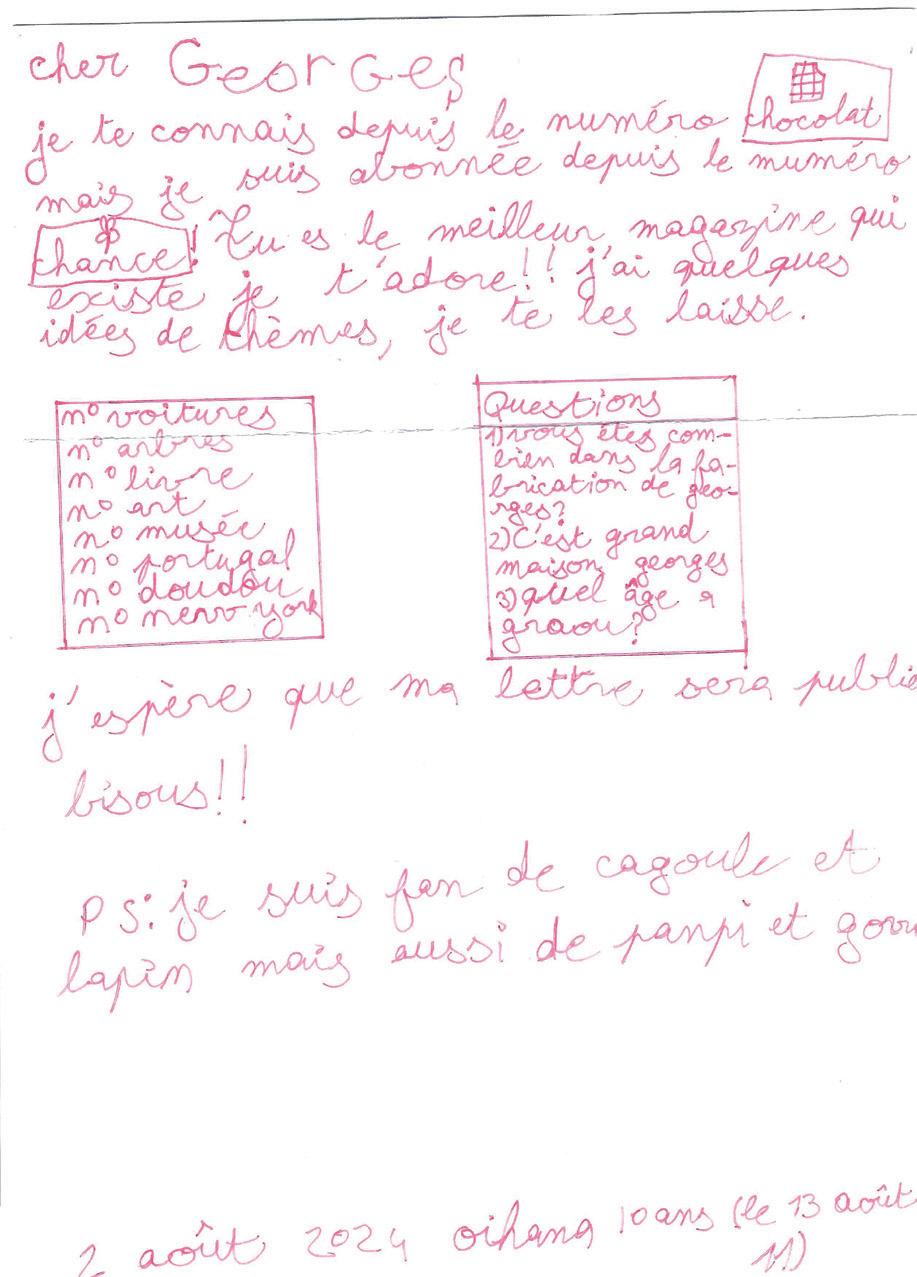 cher Georges
je te connais depuis le numéro chocolat
mais je suis abonnée depuis le numéro
chance! Tu es le meilleur magazine qui
existe je t'adore!! j'ai quelques
idées de thèmes, je te les laisse.
n° voitures
n° arbres
n° livre
n° art
n° musée
n° portugal
n° doudou
n° new york
Questions
1) vous êtes com-
bien dans la fa-
brication de geo-
rges?
2) C'est grand
maison georges
3) quel âge a
graou?
j'espère que ma lettre sera publie
bisous!!
PS: je suis fan de cagoule et
lapin mais aussi de panpi et
2 août 2024 oihana 10 ans (le 13 août
11)